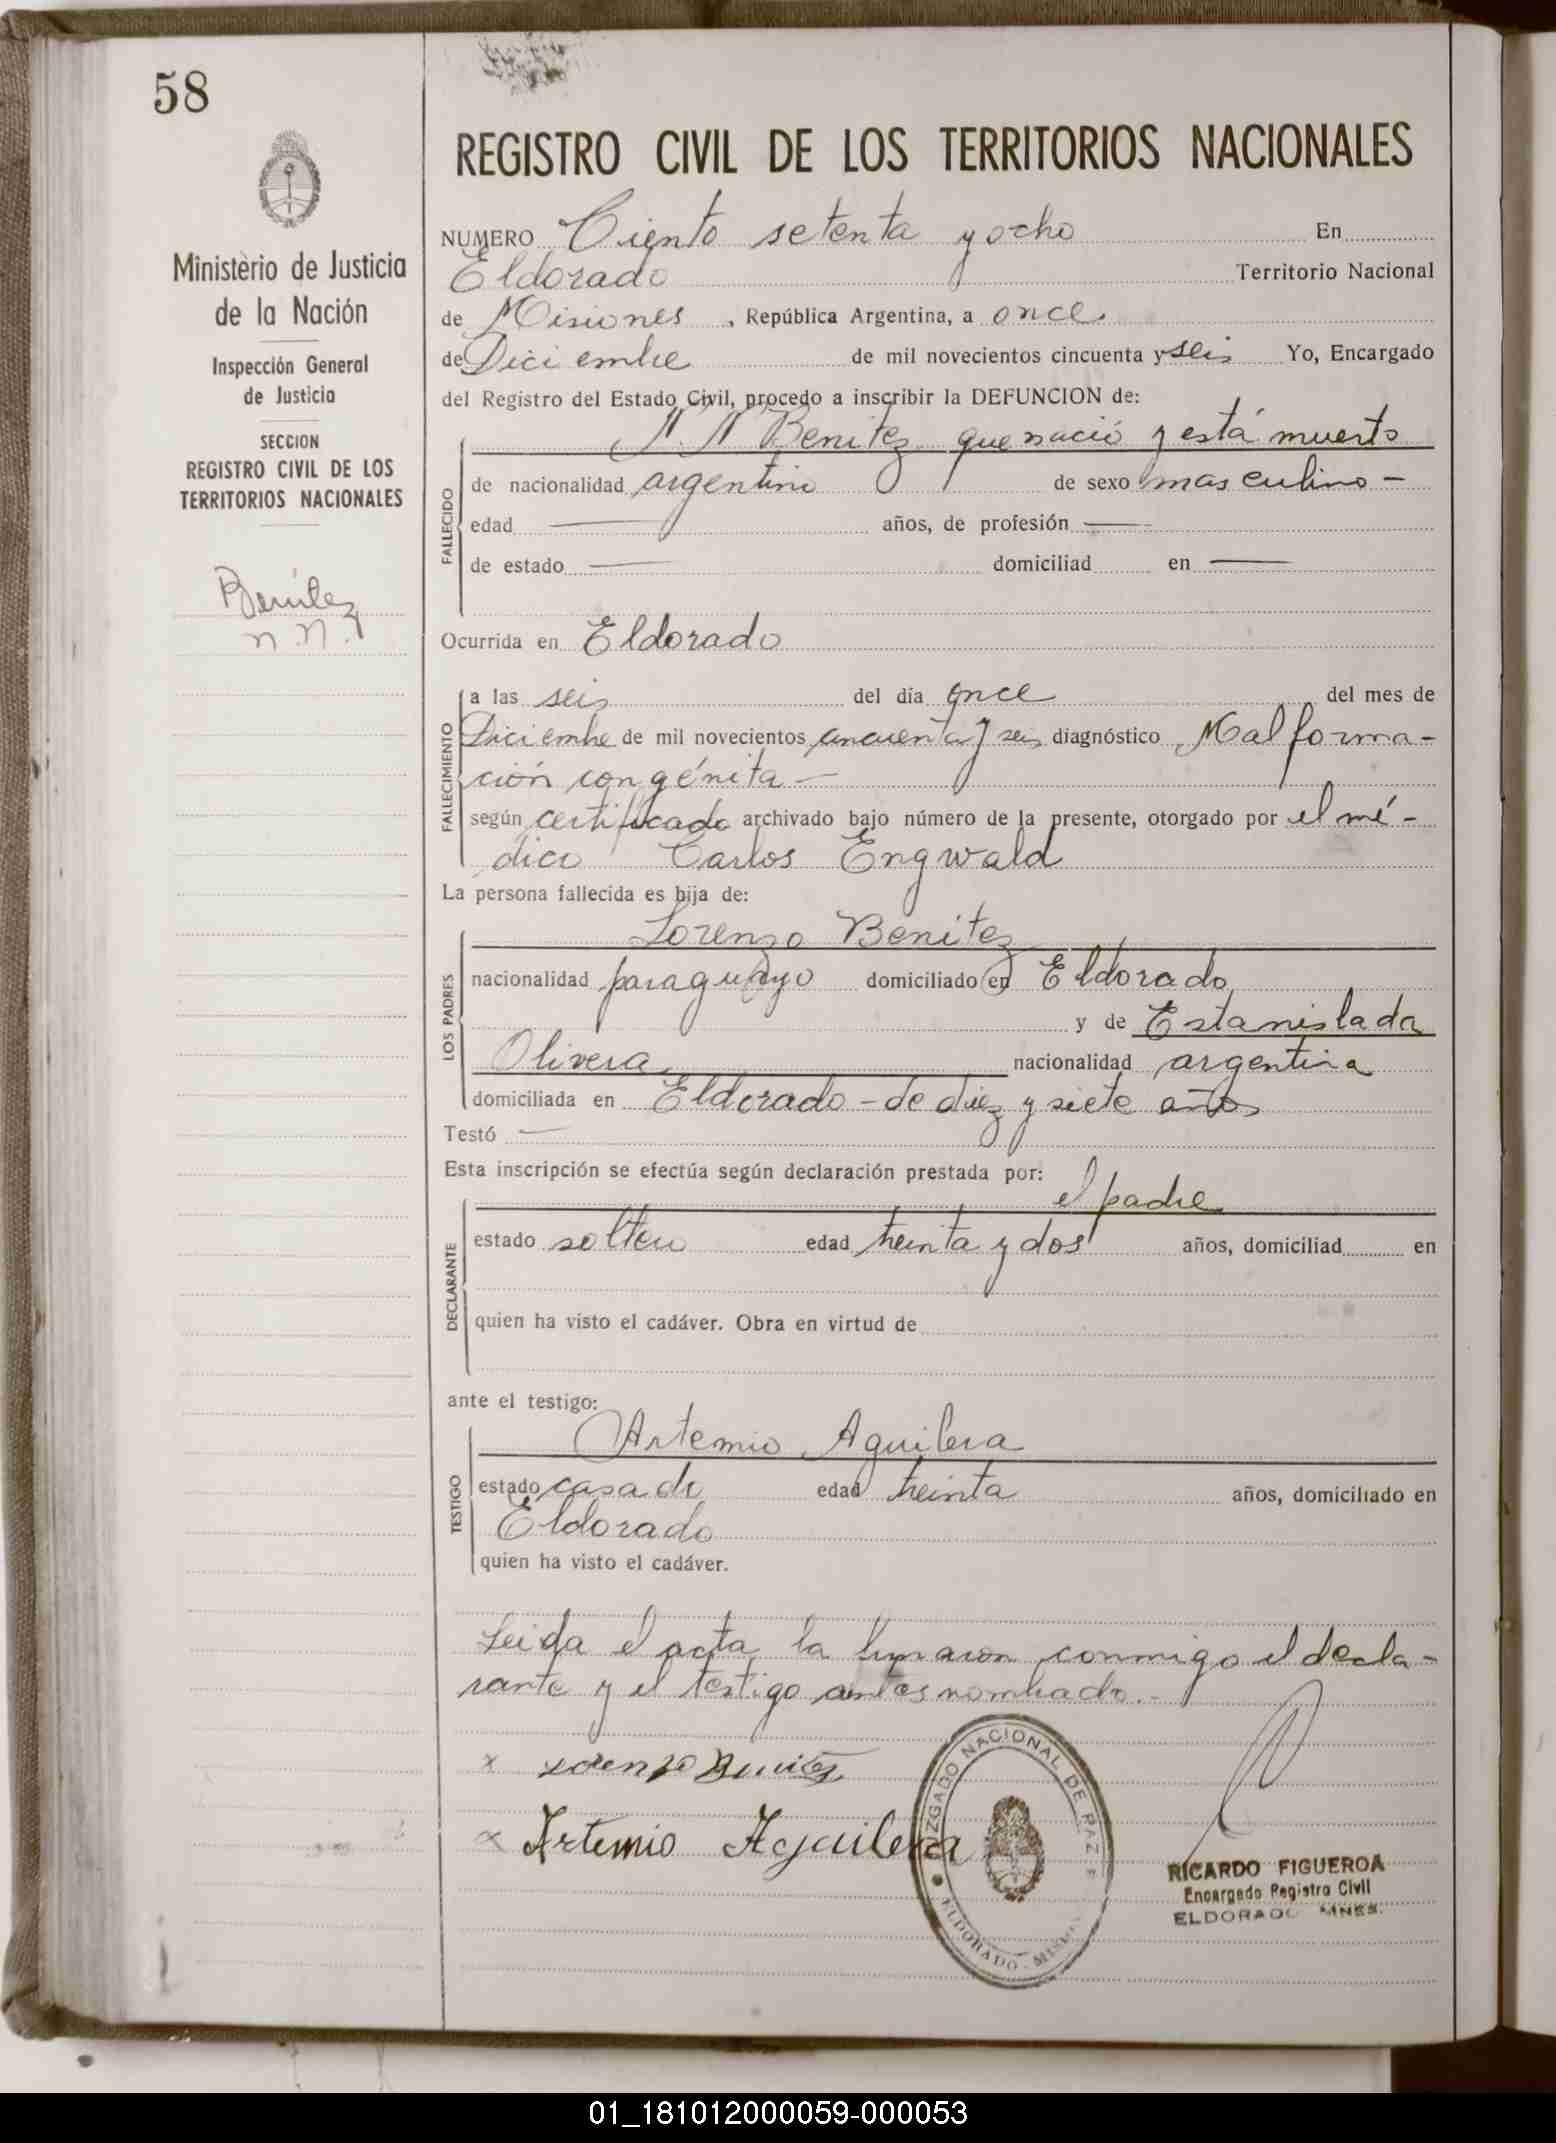 58
Ministerio de Justicia
de la Nación
Inspección General
de Justicia
SECCION
REGISTRO CIVIL DE LOS
TERRITORIOS NACIONALES
Benítez
n.n.
REGISTRO CIVIL DE LOS TERRITORIOS NACIONALES
NUMERO Ciento setenta y ocho En
Eldorado Territorio Nacional
de Misiones, República Argentina, a once
de Diciembre de mil novecientos cincuenta y seis Yo, Encargado
del Registro del Estado Civil, procedo a inscribir la DEFUNCION de:
FALLECIDO
N. N Benitez que nació y está muerto
de nacionalidad argentino de sexo masculino -
edad — años, de profesión —
de estado — domiciliad en —
Ocurrida en Eldorado
FALLECIMIENTO
a las seis del día once del mes de
Diciembre de mil novecientos cincuenta y seis diagnóstico Malforma-
ción congénita —
según certificado archivado bajo número de la presente, otorgado por el mé-
dico Carlos Engwald
La persona fallecida es hija de:
LOS PADRES
Lorenzo Benitez
nacionalidad paraguayo domiciliado en Eldorado
y de Estanislada
Olivera nacionalidad argentina
domiciliada en Eldorado - de diez y siete años
Testó —
Esta inscripción se efectúa según declaración prestada por:
DECLARANTE
el padre
estado soltero edad treinta y dos años, domiciliad en
quien ha visto el cadáver. Obra en virtud de
ante el testigo:
TESTIGO
Artemio Aguilera
estado casado edad treinta años, domiciliado en
Eldorado
quien ha visto el cadáver.
Leida el acta la firmaron conmigo el decla-
rante y el testigo antes nombrado.-
x Lorenzo Benitez
x Artemio Aguilera
JUZGADO NACIONAL DE PAZ
ELDORADO - MISIONES
RICARDO FIGUEROA
Encargado Registro Civil
ELDORADO MNES.
01_181012000059-000053